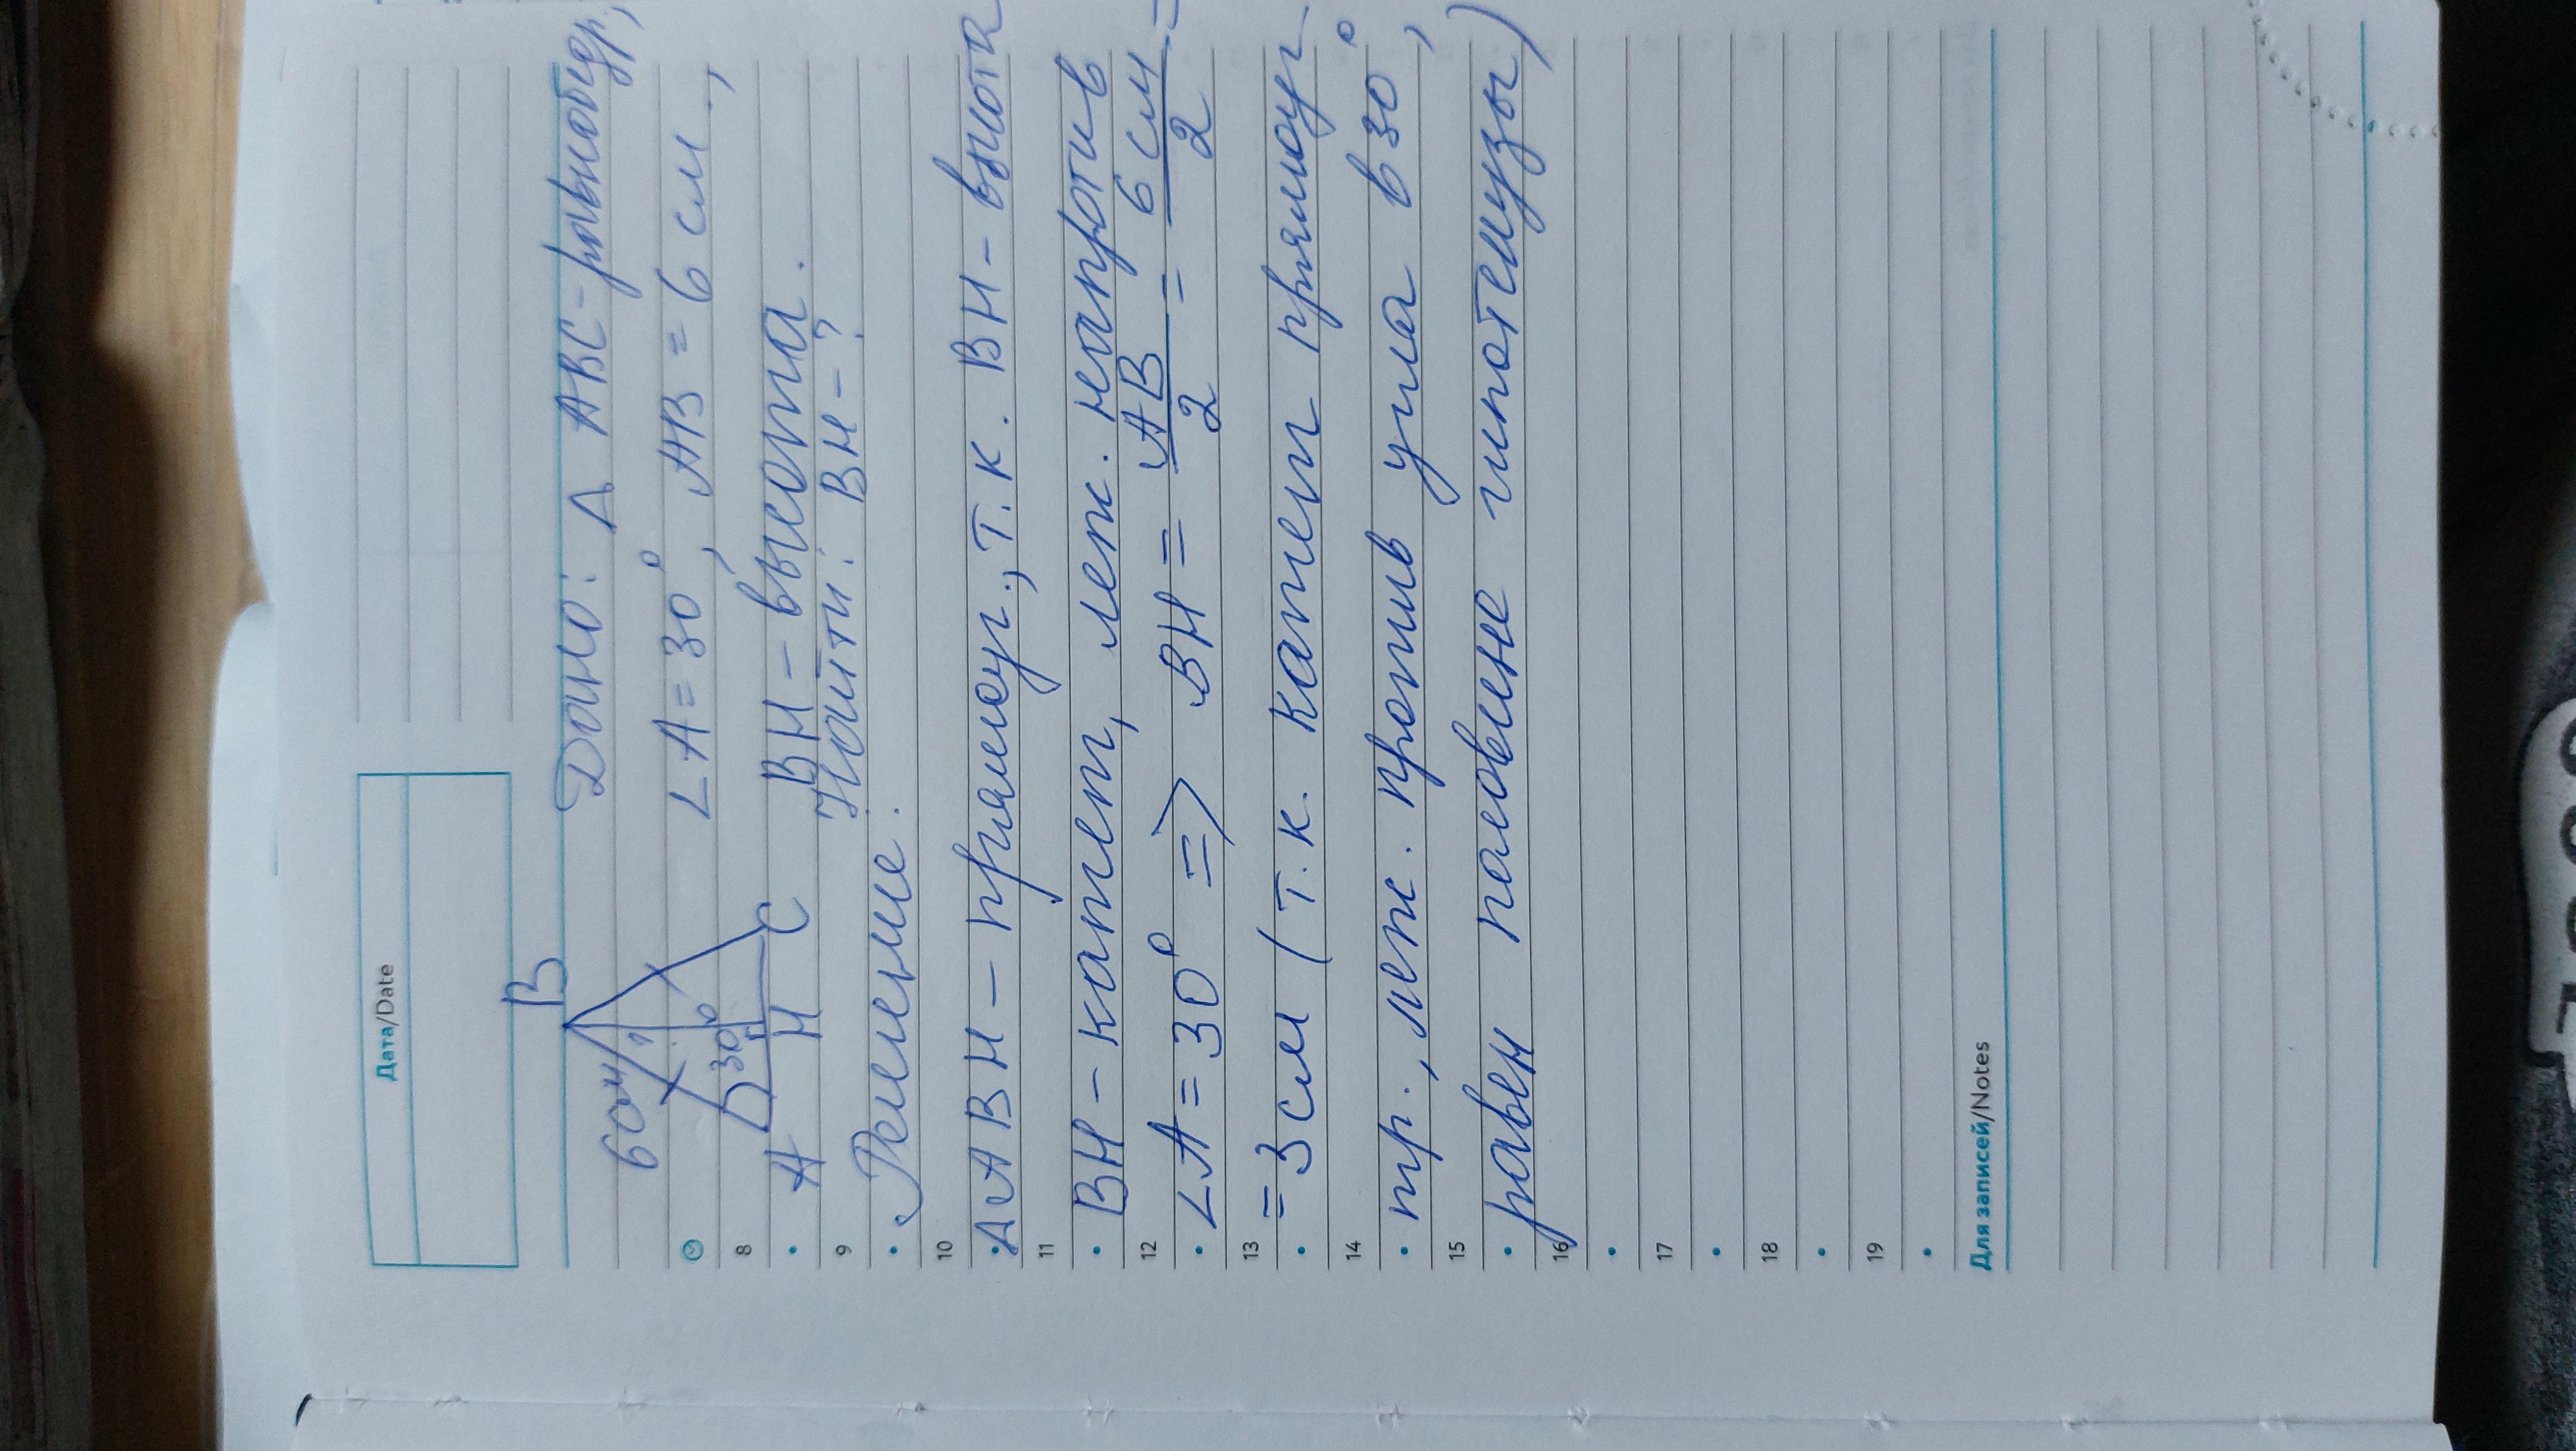 Дата/Date
B
Дано: Δ ABC - равнобедр.,
6 см
∠A = 30°, AB = 6 см.,
30°
A H C
BH - высота.
Найти: BH - ?
Решение.
ΔABH - прямоуг., т.к. BH - высота
BH - катет, леж. напротив
∠A = 30° => BH = AB/2 = 6 см/2 =
= 3 см (т.к. катет прямоуг
пр., леж. против угла в 30°,
равен половине гипотенузы)
8
9
10
11
12
13
14
15
16
17
18
19
Для записей/Notes